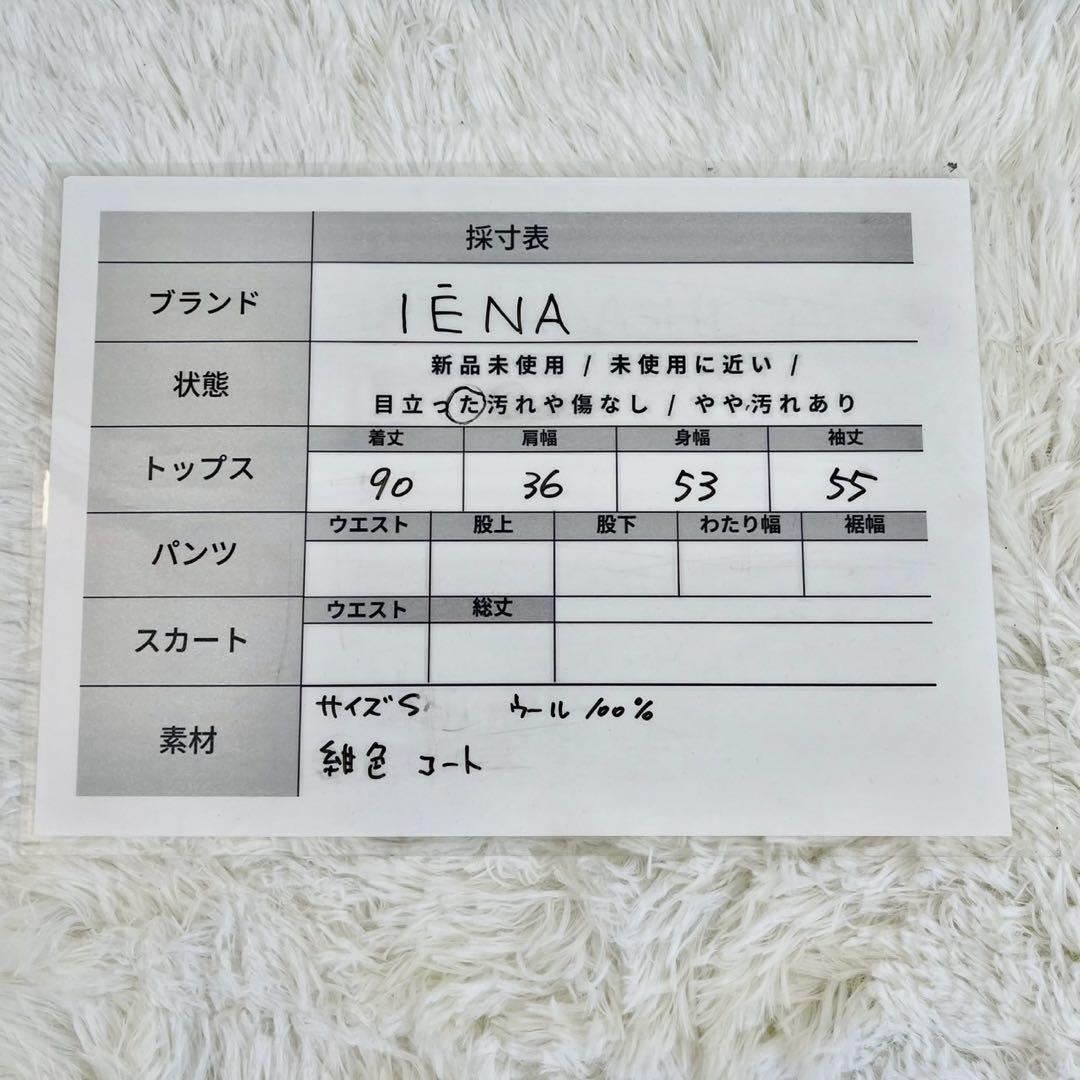 採寸表
ブランド IĒNA
状態 新品未使用 / 未使用に近い /
目立った汚れや傷なし / やや汚れあり
トップス 着丈 肩幅 身幅 袖丈
90 36 53 55
パンツ ウエスト 股上 股下 わたり幅 裾幅
スカート ウエスト 総丈
素材 サイズS ウール 100%
紺色 コート